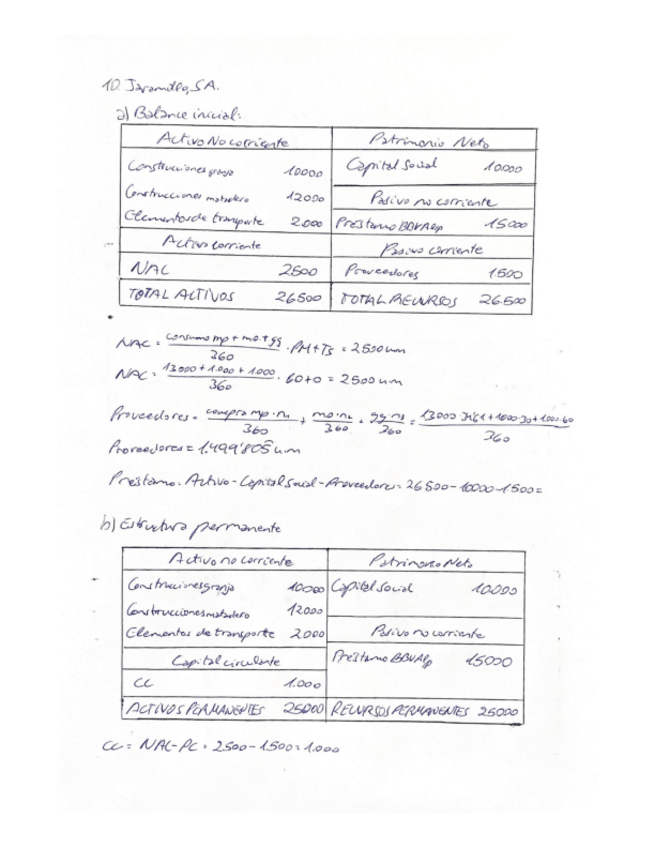 10. Jaramillo, S.A.
a) Balance inicial:
Activo No corriente Patrimonio Neto
Construcciones granja 10000 Capital Social 10.000
Construcciones matadero 12000 Pasivo no corriente
Elementos de transporte 2.000 Préstamo BBVA lp 15000
Activo corriente Pasivo corriente
NAC 2500 Proveedores 1500
TOTAL ACTIVOS 26500 TOTAL RECURSOS 26.500
NAC = consumo mp + mo + gg / 360 · PM + Ts = 2500 um
NAC = 13.000 + 1.000 + 1.000 / 360 · 60 + 0 = 2500 um
Proveedores = compra mp · n1 / 360 + mo · n2 / 360 + gg · n3 / 360 = 13000 · 34'61 + 1000 · 30 + 1.000 · 60 / 360
Proveedores = 1.499'805 um
Préstamo = Activo - Capital Social - Proveedores = 26500 - 10000 - 1500 =
b) Estructura permanente
Activo no corriente Patrimonio Neto
Construcciones granja 10000 Capital social 10.000
Construcciones matadero 12000
Elementos de transporte 2000 Pasivo no corriente
Capital circulante Préstamo BBVA lp 15000
CC 1.000
ACTIVOS PERMANENTES 25000 RECURSOS PERMANENTES 25000
CC = NAC - PC = 2500 - 1500 = 1.000